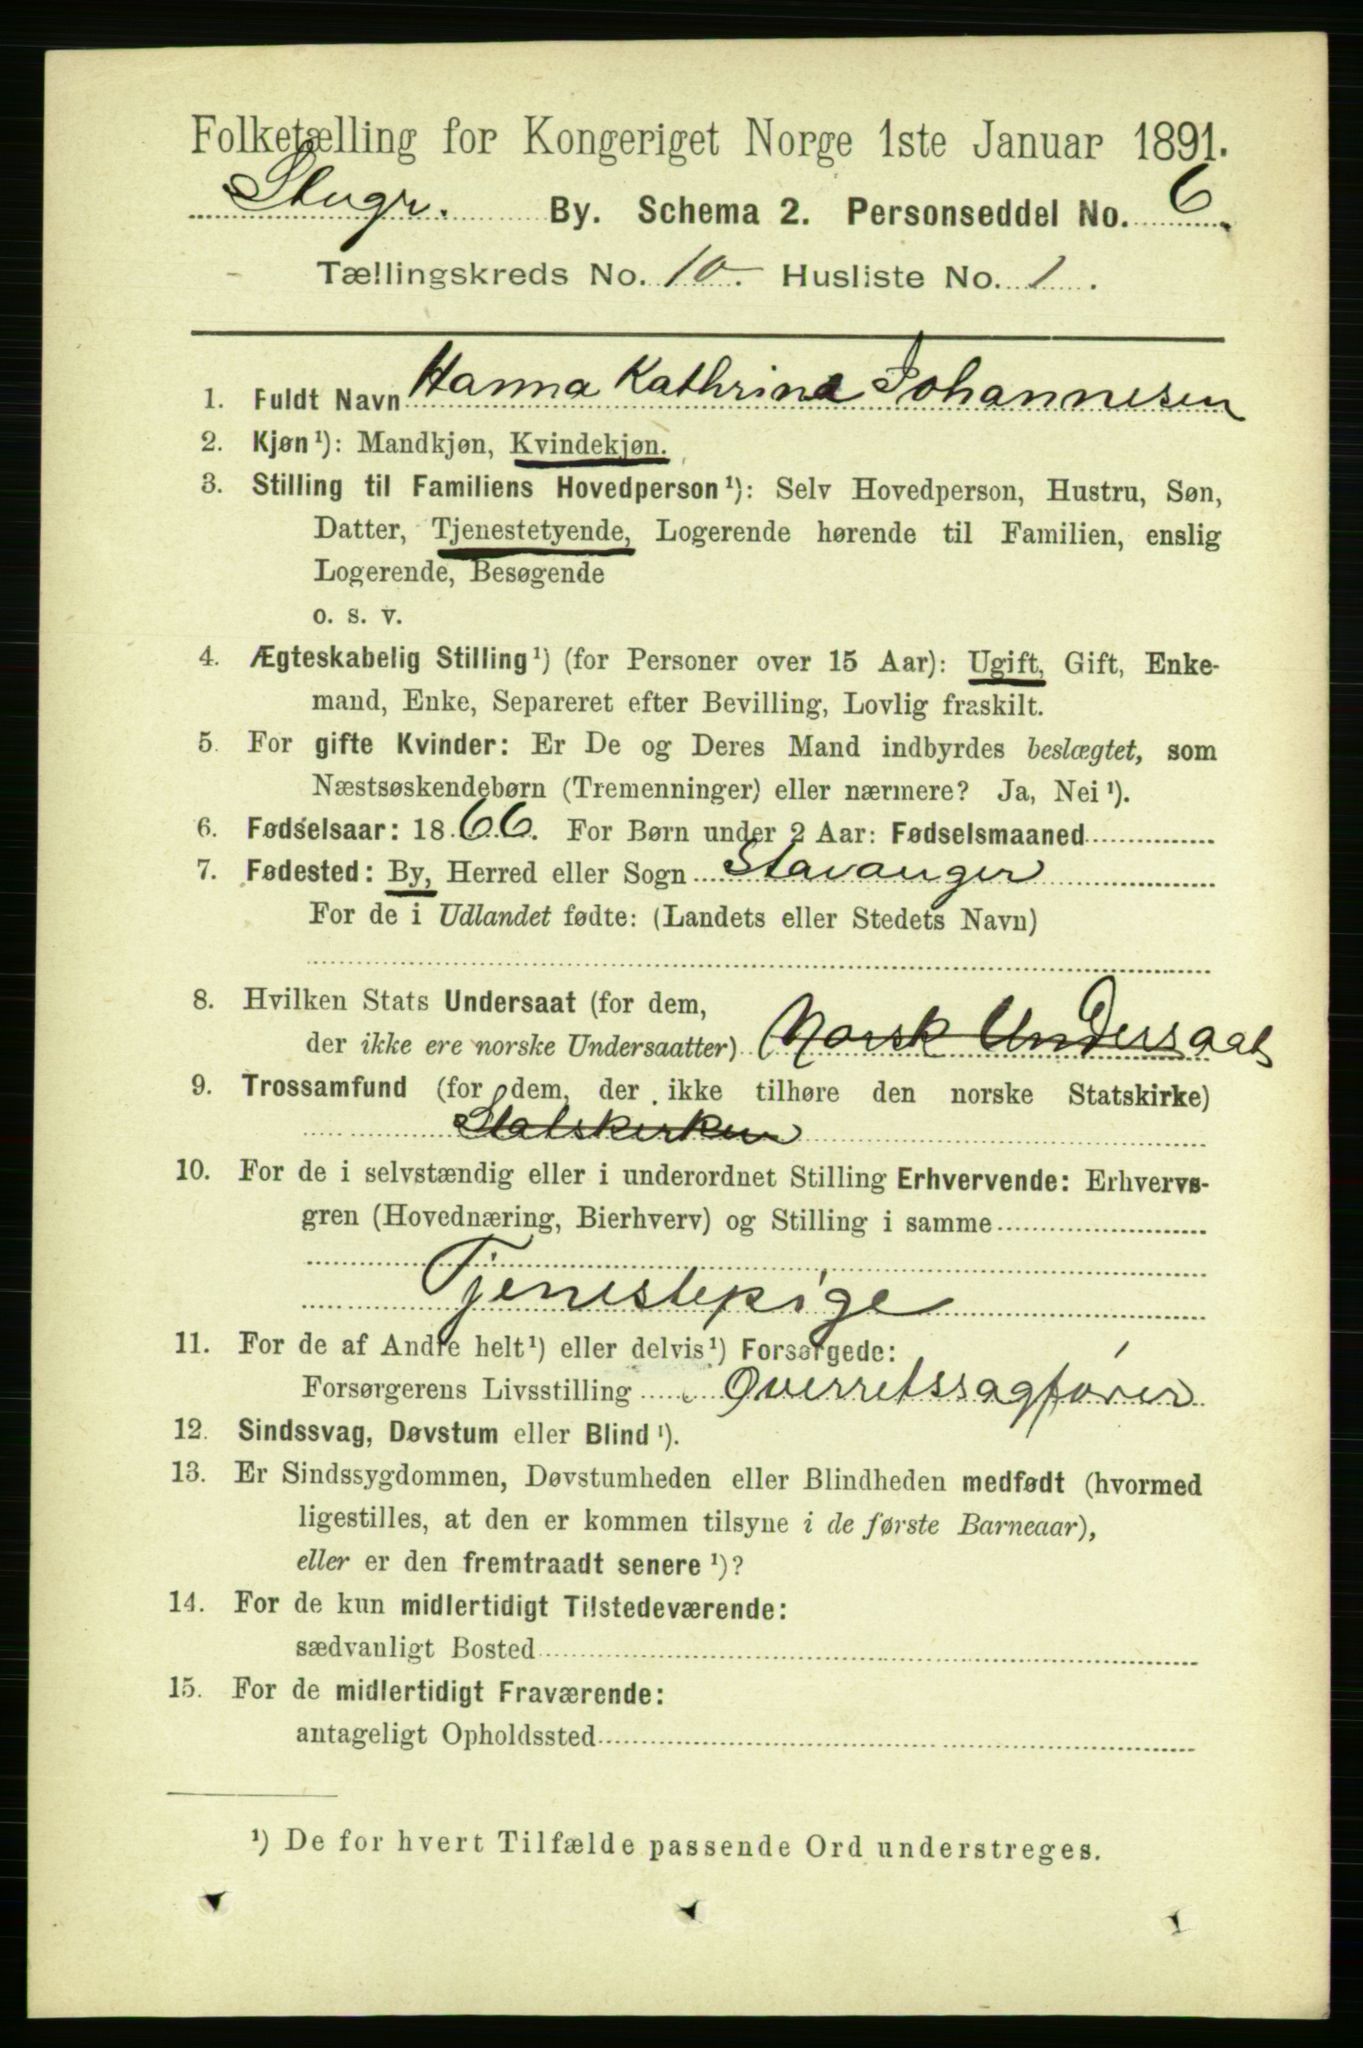 Folketælling for Kongeriget Norge 1ste Januar 1891.
Stvgr. By. Schema 2. Personseddel No. 6.
Tællingskreds No. 10. Husliste No. 1.
1. Fuldt Navn Hanna Kathrine Johannesen
2. Kjøn ¹): Mandkjøn, Kvindekjøn.
3. Stilling til Familiens Hovedperson ¹): Selv Hovedperson, Hustru, Søn,
Datter, Tjenestetyende, Logerende hørende til Familien, enslig
Logerende, Besøgende
o. s. v.
4. Ægteskabelig Stilling ¹) (for Personer over 15 Aar): Ugift, Gift, Enke-
mand, Enke, Separeret efter Bevilling, Lovlig fraskilt.
5. For gifte Kvinder: Er De og Deres Mand indbyrdes beslægtet, som
Næstsøskendebørn (Tremenninger) eller nærmere? Ja, Nei ¹).
6. Fødselsaar: 1866. For Børn under 2 Aar: Fødselsmaaned
7. Fødested: By, Herred eller Sogn Stavanger
For de i Udlandet fødte: (Landets eller Stedets Navn)
8. Hvilken Stats Undersaat (for dem,
der ikke ere norske Undersaatter) Norsk Undersaat
9. Trossamfund (for dem, der ikke tilhøre den norske Statskirke)
Statskirken
10. For de i selvstændig eller i underordnet Stilling Erhvervende: Erhvervs-
gren (Hovednæring, Bierhverv) og Stilling i samme
Tjenestepige
11. For de af Andre helt ¹) eller delvis ¹) Forsørgede:
Forsørgerens Livsstilling Overretssagfører
12. Sindssvag, Døvstum eller Blind ¹).
13. Er Sindssygdommen, Døvstumheden eller Blindheden medfødt (hvormed
ligestilles, at den er kommen tilsyne i de første Barneaar),
eller er den fremtraadt senere ¹)?
14. For de kun midlertidigt Tilstedeværende:
sædvanligt Bosted
15. For de midlertidigt Fraværende:
antageligt Opholdssted
¹) De for hvert Tilfælde passende Ord understreges.